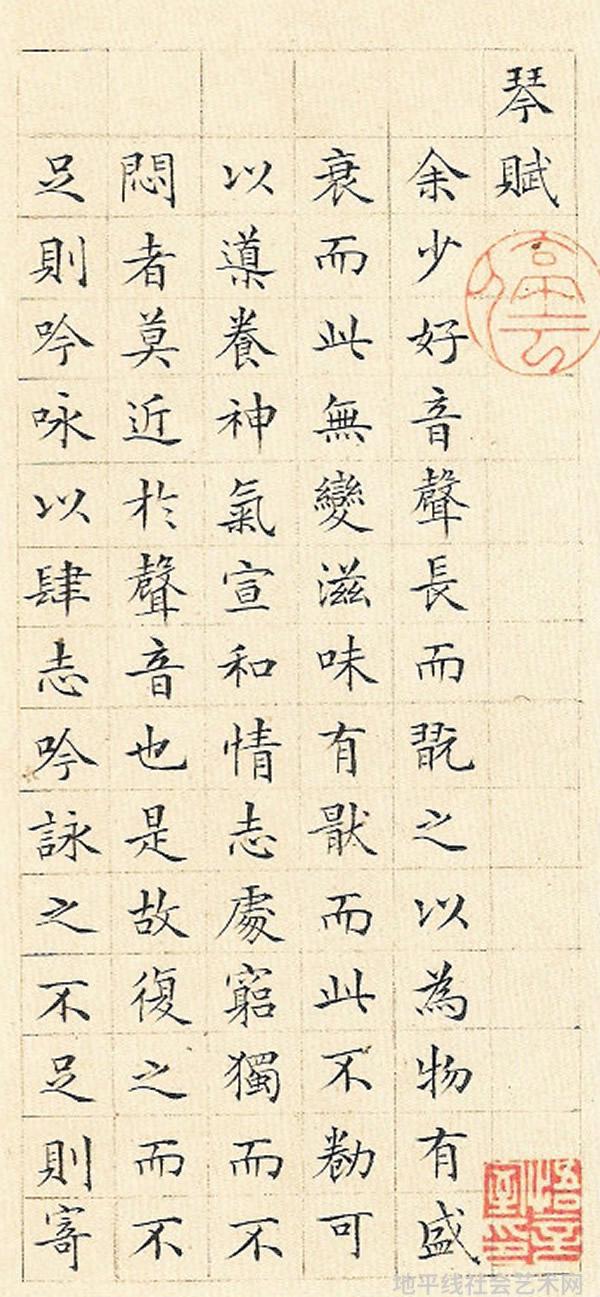 琴賦
余少好音聲長而翫之以為物有盛
衰而此無變滋味有猒而此不勌可
以導養神氣宣和情志處窮獨而不
悶者莫近於聲音也是故復之而不
足則吟咏以肆志吟詠之不足則寄
地平线社会艺术网